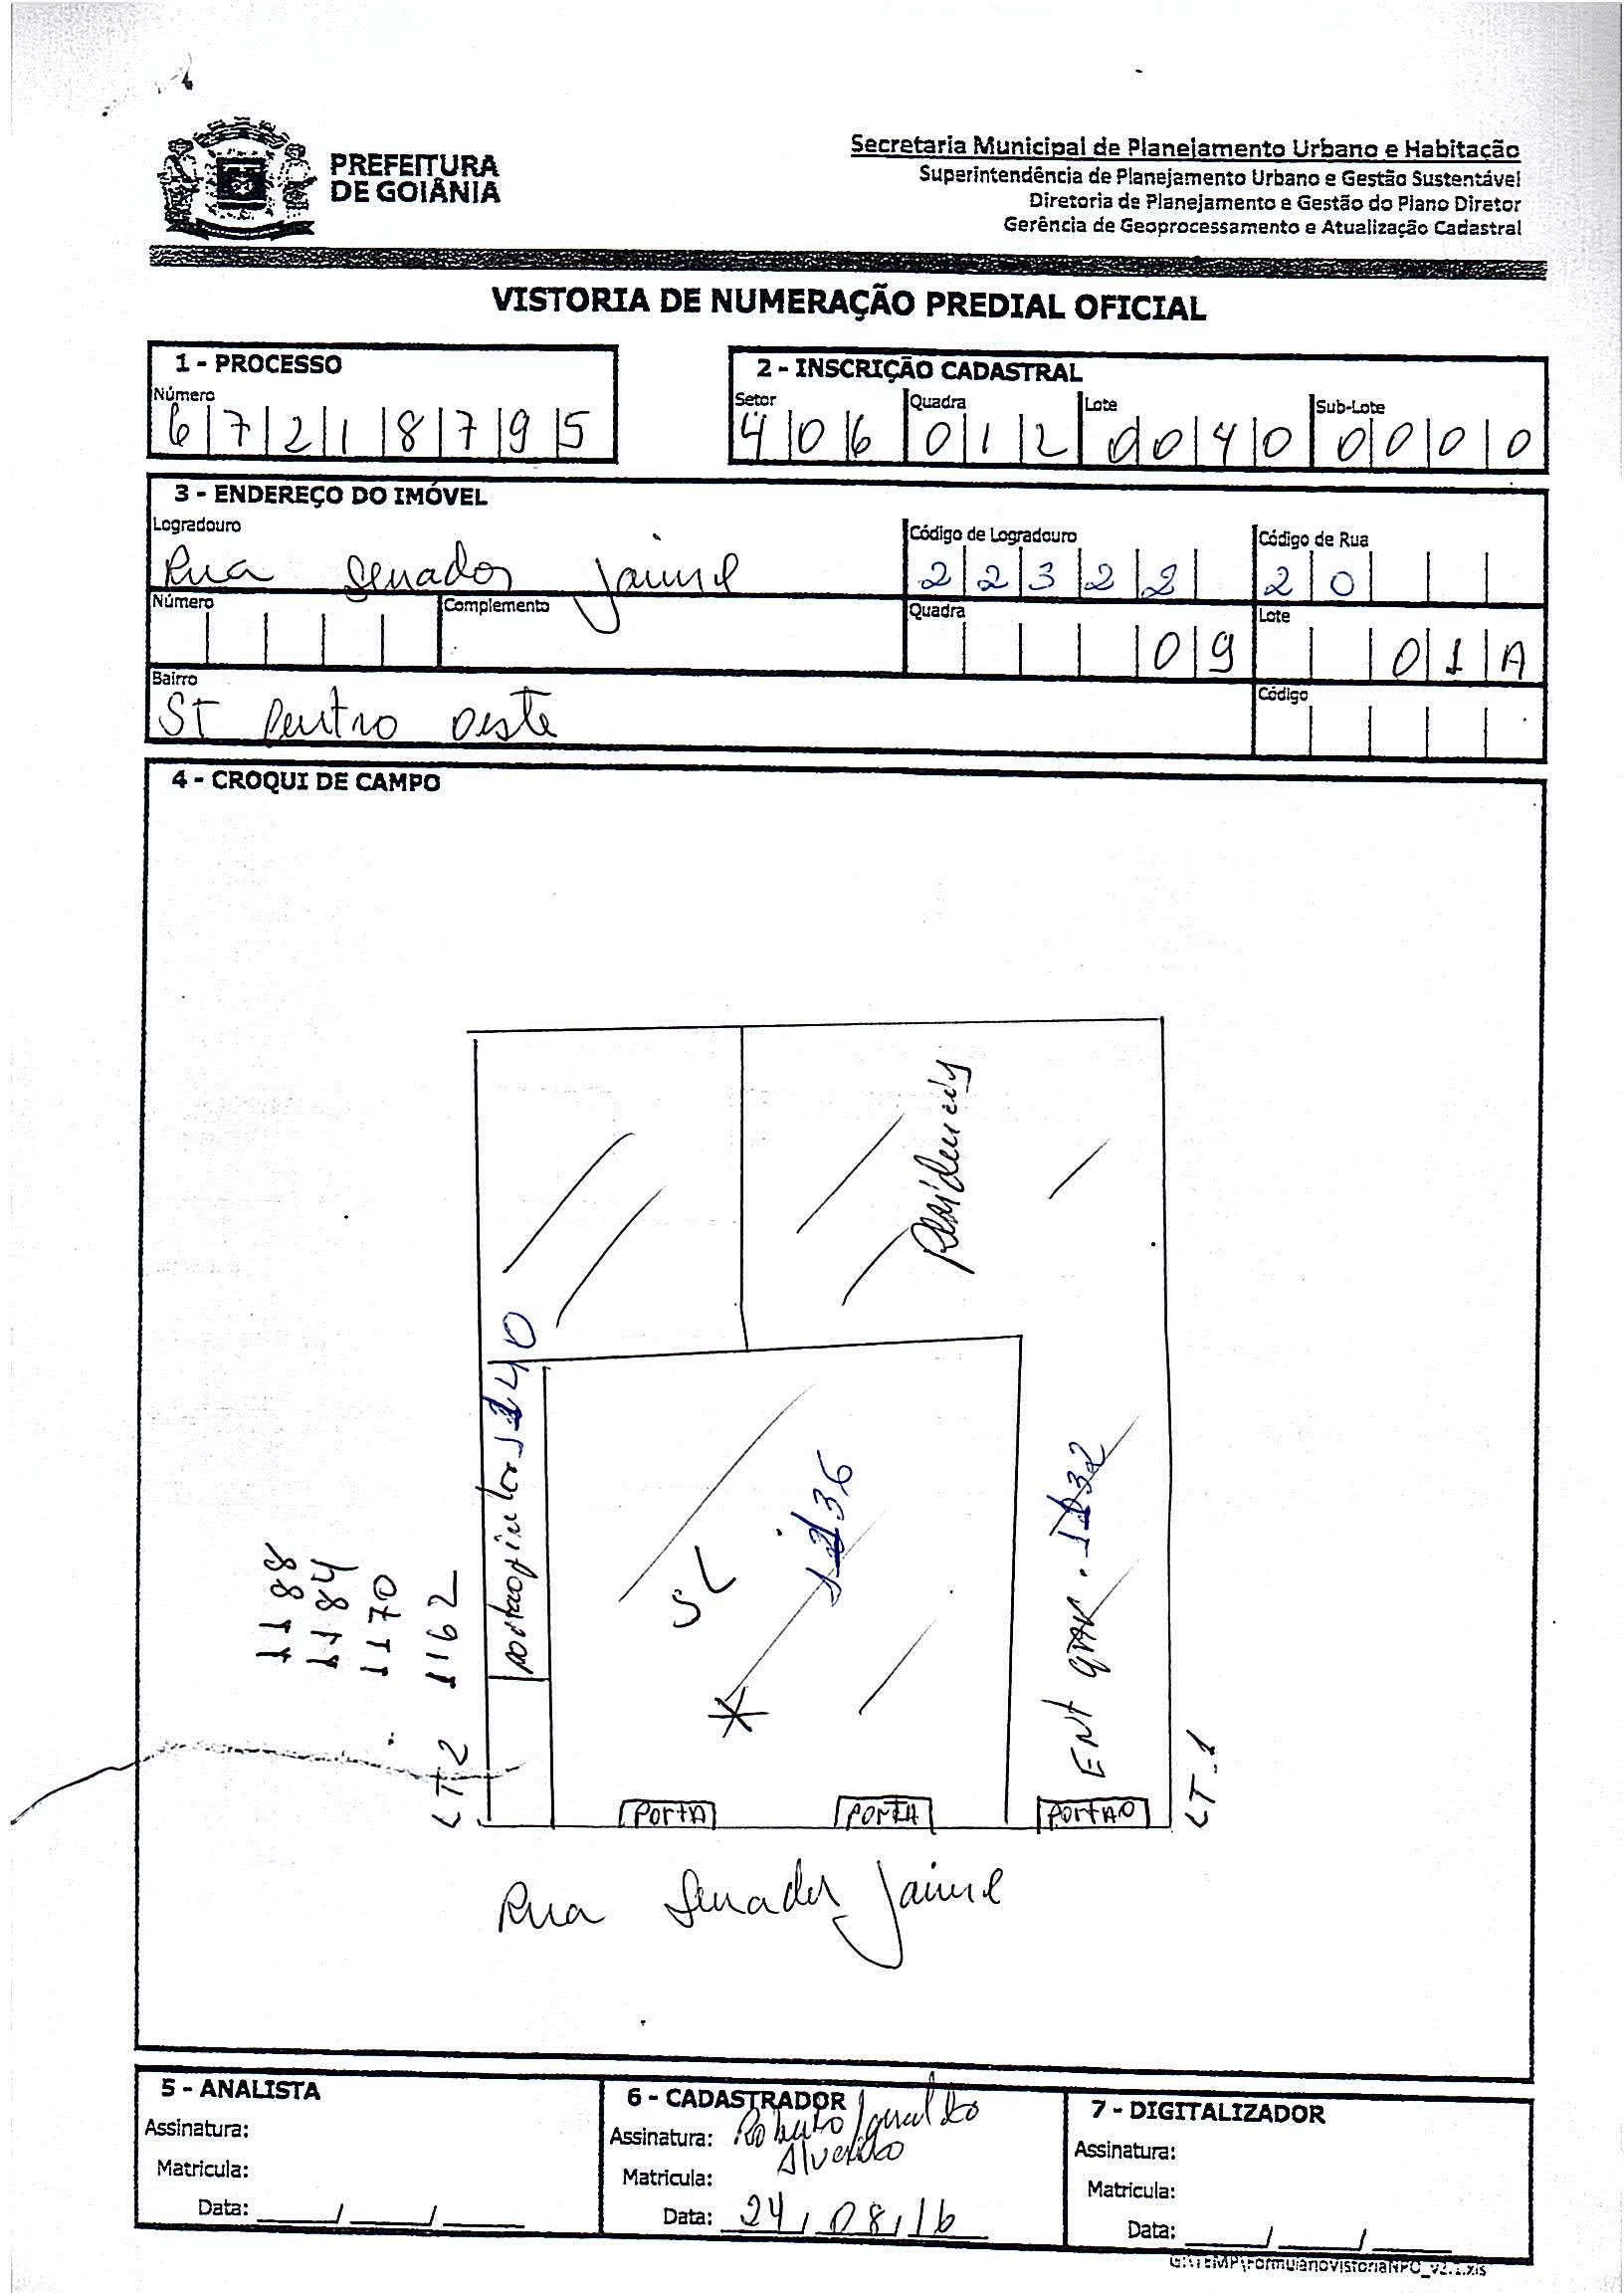 PREFEITURA
DE GOIÂNIA
Secretaria Municipal de Planejamento Urbano e Habitação
Superintendência de Planejamento Urbano e Gestão Sustentável
Diretoria de Planejamento e Gestão do Plano Diretor
Gerência de Geoprocessamento e Atualização Cadastral
VISTORIA DE NUMERAÇÃO PREDIAL OFICIAL
1 - PROCESSO
Número
6 7 2 1 8 7 9 5
2 - INSCRIÇÃO CADASTRAL
Setor Quadra Lote Sub-Lote
4 0 6 0 1 2 0 0 4 0 0 0 0 0
3 - ENDEREÇO DO IMÓVEL
Logradouro Código de Logradouro Código de Rua
Rua Senador Jaime 2 2 3 2 2 2 0
Número Complemento Quadra Lote
0 9 0 1 A
Bairro Código
ST Centro Oeste
4 - CROQUI DE CAMPO
Residencia
1140
1136
SL
Ent gar. 1132
1188
1184
1170
1162
LT 2
LT.1
PORTA PORTA PORTAO
Rua Senador Jaime
5 - ANALISTA
Assinatura:
Matricula:
Data: ____/____/____
6 - CADASTRADOR
Assinatura: Roberto
Matricula:
Data: 24/08/16
7 - DIGITALIZADOR
Assinatura:
Matricula:
Data: ____/____/____
G:\TEMP\FormularioVistoriaNPO_v2.1.xls